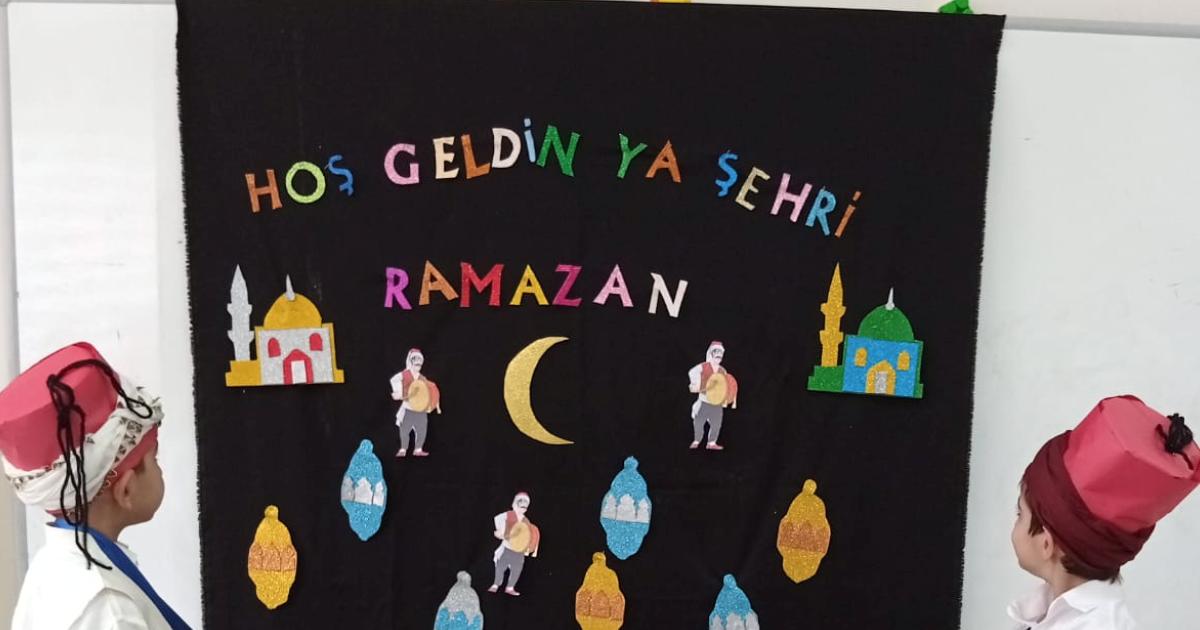 HOŞ GELDiN YA ŞEHRi
RAMAZAN